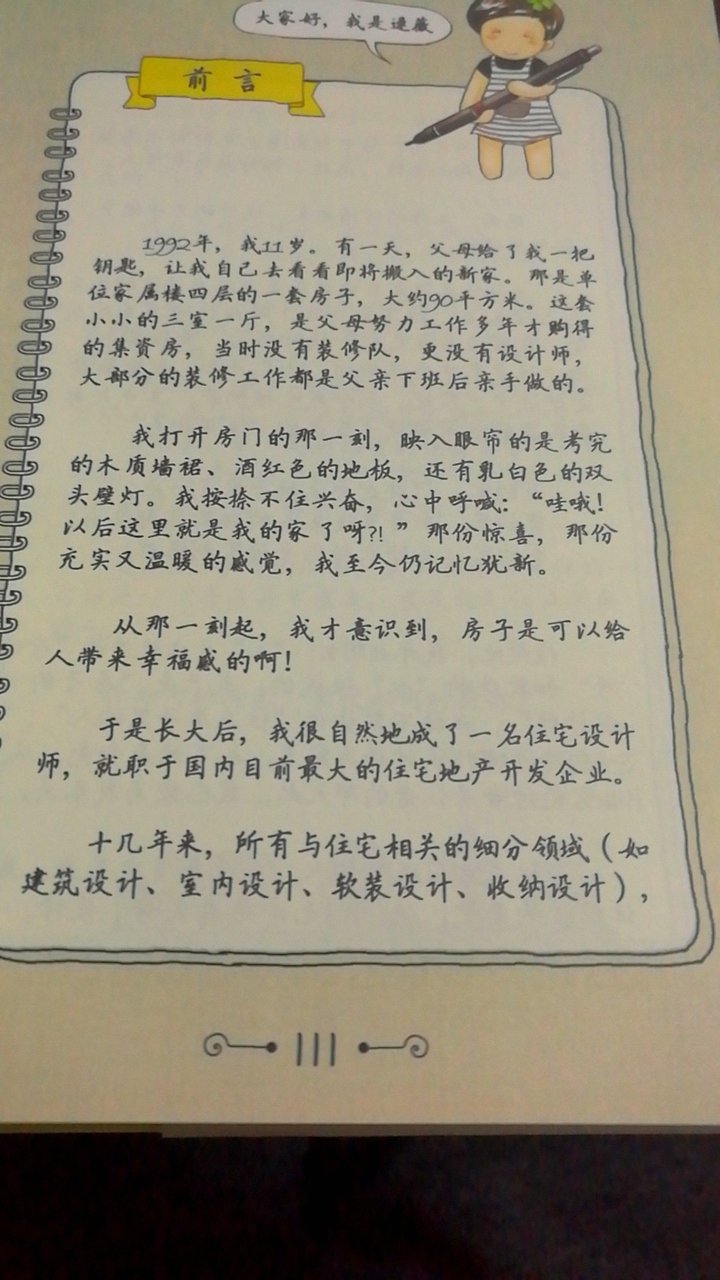 大家好，我是逯薇
前言
1992年，我11岁。有一天，父母给了我一把
钥匙，让我自己去看看即将搬入的新家。那是单
位家属楼四层的一套房子，大约90平方米。这套
小小的三室一厅，是父母努力工作多年才购得
的集资房，当时没有装修队，更没有设计师，
大部分的装修工作都是父亲下班后亲手做的。
我打开房门的那一刻，映入眼帘的是考究
的木质墙裙、酒红色的地板，还有乳白色的双
头壁灯。我按捺不住兴奋，心中呼喊：“哇哦！
以后这里就是我的家了呀?!”那份惊喜，那份
充实又温暖的感觉，我至今仍记忆犹新。
从那一刻起，我才意识到，房子是可以给
人带来幸福感的啊！
于是长大后，我很自然地成了一名住宅设计
师，就职于国内目前最大的住宅地产开发企业。
十几年来，所有与住宅相关的细分领域（如
建筑设计、室内设计、软装设计、收纳设计），
III